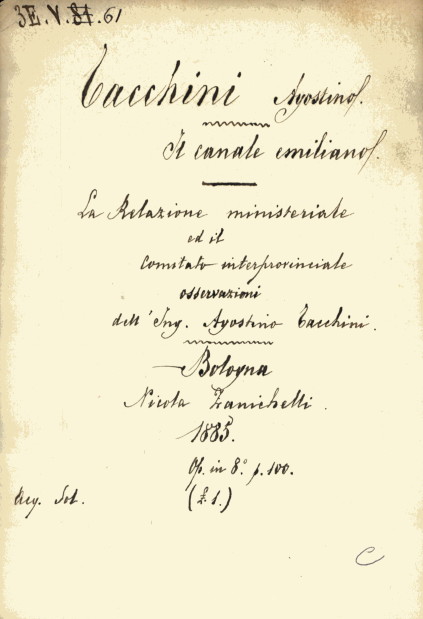 3E.V.81.61
Tacchini Agostino.
Il canale emiliano.
La Relazione ministeriale
ed il
Comitato interprovinciale
osservazioni
dell'Ing. Agostino Tacchini.
Bologna
Nicola Zanichelli.
1885.
Op. in 8.° p. 100.
Acq. Sol. (£ 1.)
C